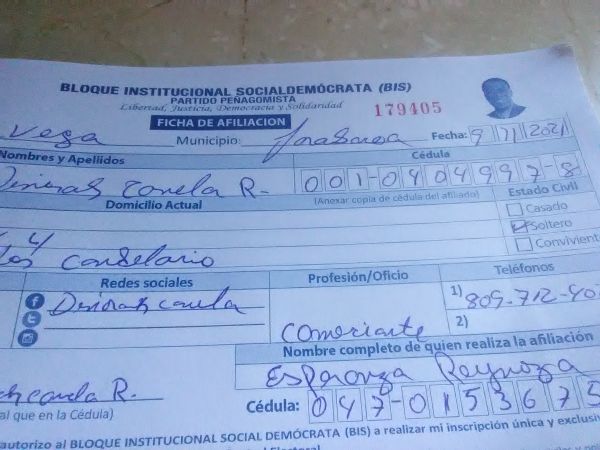 BLOQUE INSTITUCIONAL SOCIALDEMÓCRATA (BIS)
PARTIDO PEÑAGOMISTA
Libertad, Justicia, Democracia y Solidaridad
179405
FICHA DE AFILIACION
vega Municipio: Fecha: 9/11/2021
Nombres y Apellidos Cédula
canela R. 001-0404997-8
Domicilio Actual (Anexar copia de cédula del afiliado) Estado Civil
Casado
Soltero
Conviviente
candelario
Redes sociales Profesión/Oficio Teléfonos
canela 1) 809-712-40
2)
comeriante
Nombre completo de quien realiza la afiliación
Esperanza Reynoza
canela R.
al que en la Cédula) Cédula: 047-0153675
autorizo al BLOQUE INSTITUCIONAL SOCIAL DEMÓCRATA (BIS) a realizar mi inscripción única y